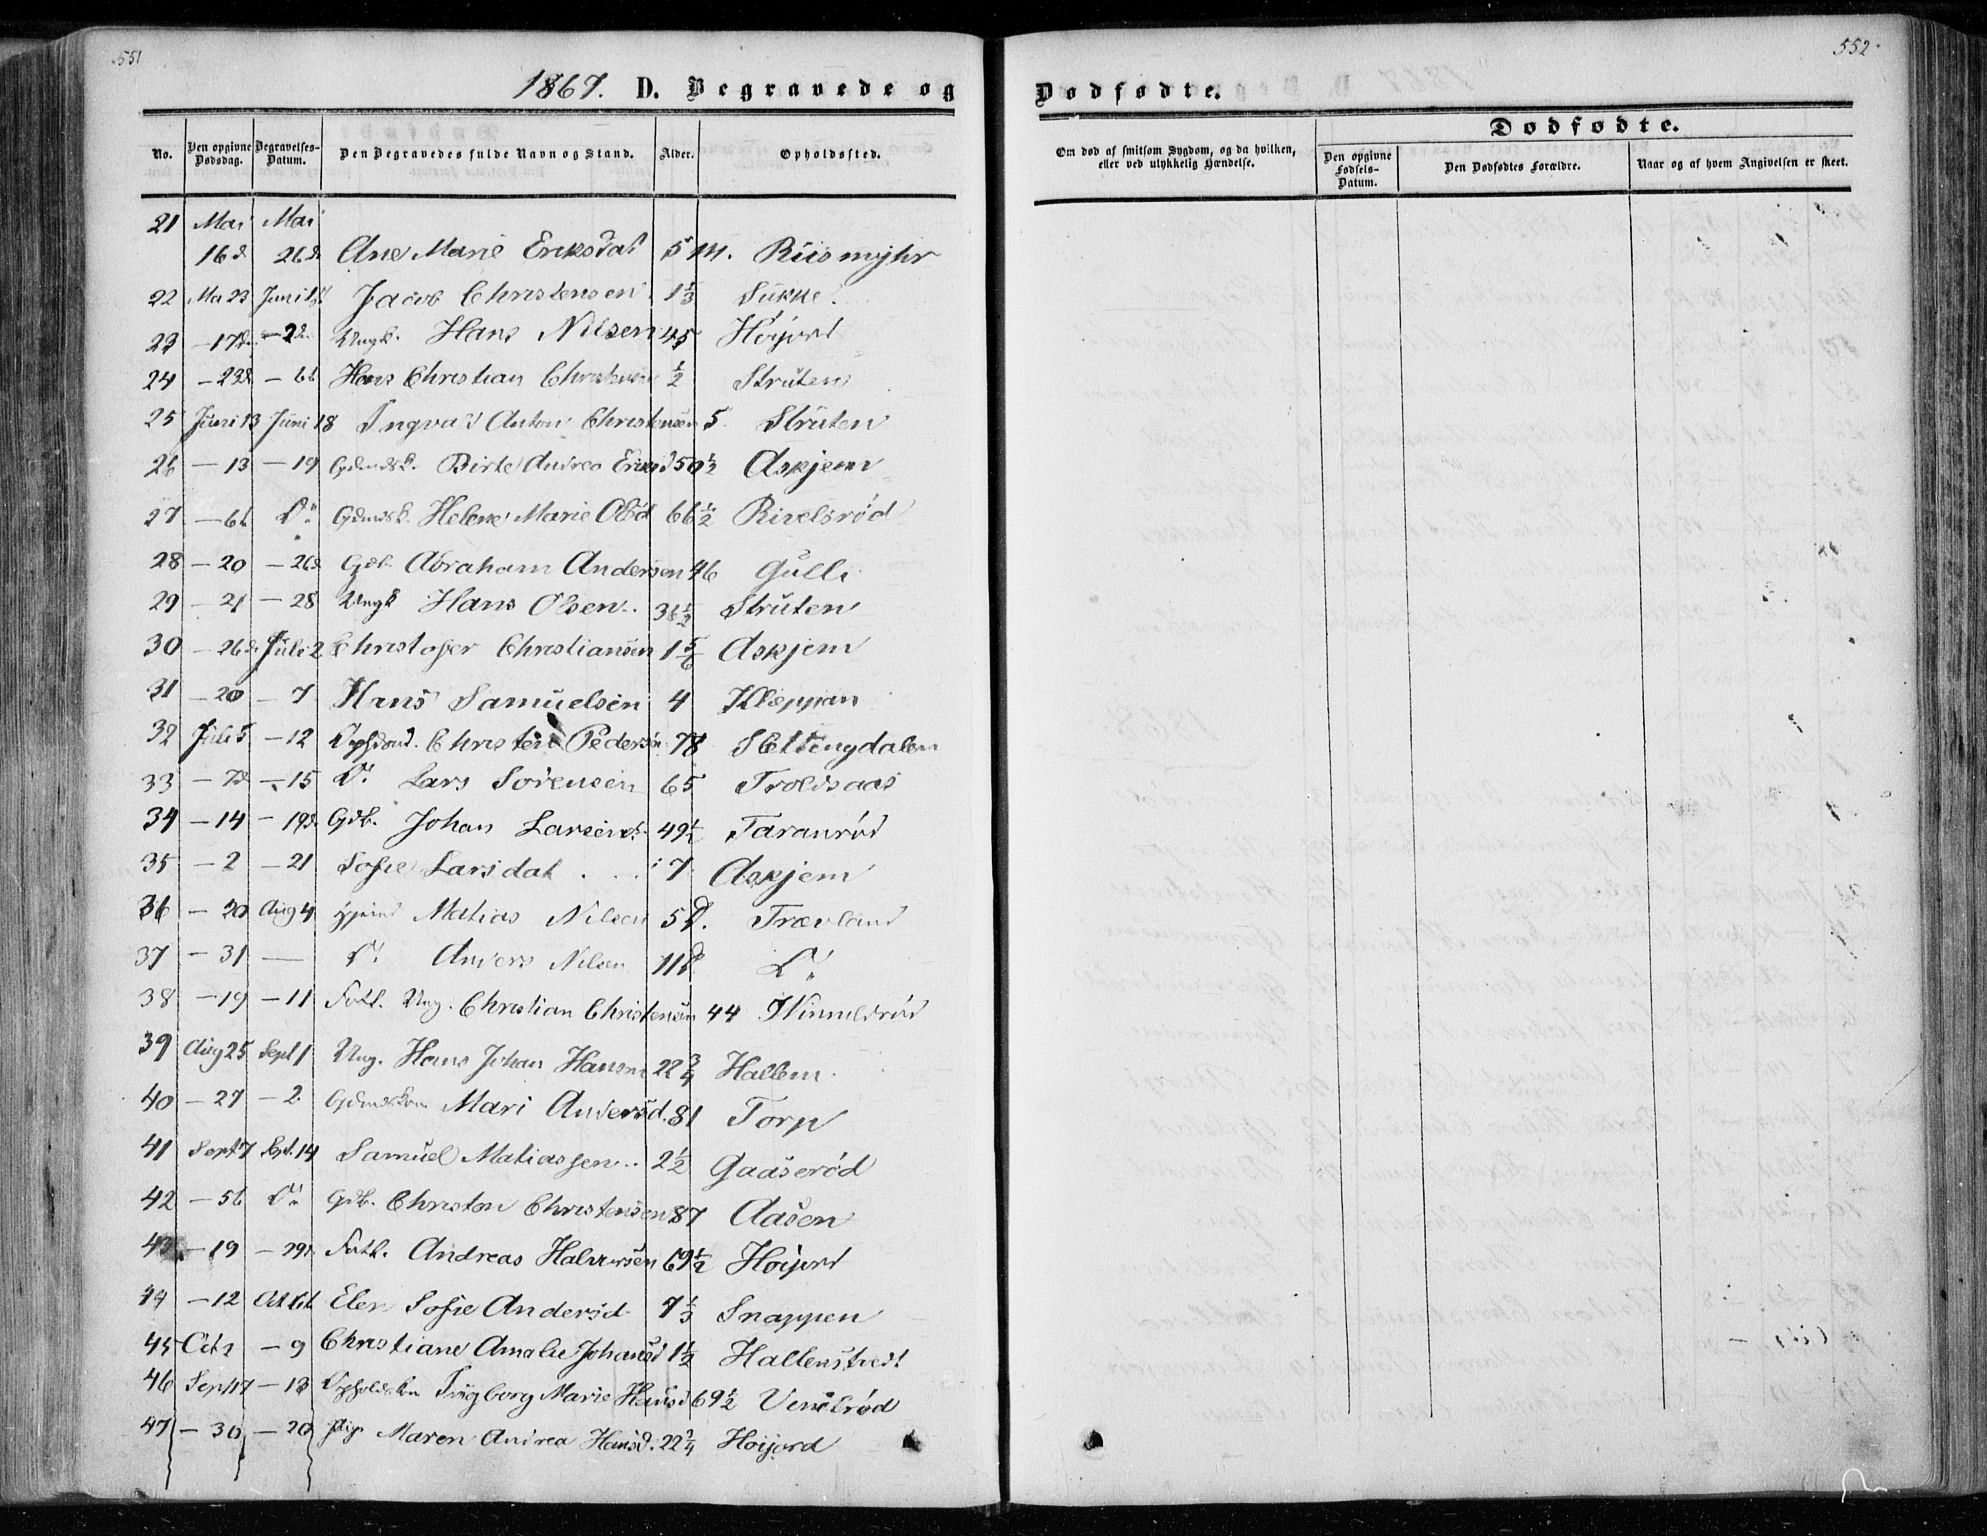 551
552
1867. D. Begravede og
Dødfødte.
No.
Den opgivne Dødsdag.
Begravelses-Datum.
Den Begravedes fulde Navn og Stand.
Alder.
Opholdssted.
Om død af smitsom Sygdom, og da hvilken, eller ved ulykkelig Hændelse.
Dødfødte.
Den opgivne Fødsels-Datum.
Den Dødfødtes Forældre.
Naar og af hvem Angivelsen er skeet.
21 Mai Mai
16d 26d Ane Marie Eriksdat 5 M. Riismyhr
22 Mai 23 Juni 1st Jacob Christensen 1 1/3 Sukke.
23 - 17d - 2d Ungk. Hans Nilsen 45 Høijord
24 - 23d - 6t Hans Christian Christensen 1/2 Struten
25 Juni 13 Juni 18 Ingvad Anton Christensen 5 Struten
26 - 13 - 19 Gdmdsk. Birte Andrea Eriksd 50 1/2 Askjem
27 - 6t Do Gdmdsk. Helene Marie Olsd 66 1/2 Rivelsrød
28 - 20 - 26d Gdb. Abraham Andersen 46 Gulli
29 - 21 - 28 Ungk Hans Olsen 36 1/2 Struten
30 - 26d Juli 2 Christofer Christiansen 1 5/6 Askjem
31 - 20 - 7 Hans Samuelsen 4 Kleppan
32 Juli 5 - 12 Christen Pedersen 78 Slettingdalen
33 - 7d - 15 Do Lars Sørensen 65 Troldsaas
34 - 14 - 19d Gdb. Johan Larsen 49 1/2 Taranrød
35 - 2 - 21 Sofie Larsdat 7 Askjem
36 - 20 Aug 4 Matias Nilsen 5 D. Trævland
37 - 31 — Do Anders Nilsen 11 D. Do
38 - 19 - 11 Fattl. Ung. Christian Christensen 44 Himmelsrød
39 Aug 25 Sept 1 Ung. Hans Johan Hansen 22 3/4 Hallem
40 - 27 - 2 Gdmdskone Mari Andersd. 81 Torp
41 Sept 7 Sept. 14 Samuel Matiassen 2 1/2 Gaaserød
42 - 5t Do Gdb. Christon Christensen 87 Aasen
43 - 19 - 29 Fattl. Andreas Halvorsen 69 1/2 Høijord
44 - 12 Oct 6t Elen Sofie Andersd 7 1/3 Snappen
45 Oct 2 - 9 Christiane Amalie Johansd 1 1/2 Hallenstvedt
46 Sept 17 - 13 Opholdskn Ingborg Marie Hansd 69 1/2 Venelrød
47 - 30 - 20 Pige Maren Andrea Hansd. 22 3/4 Høijord